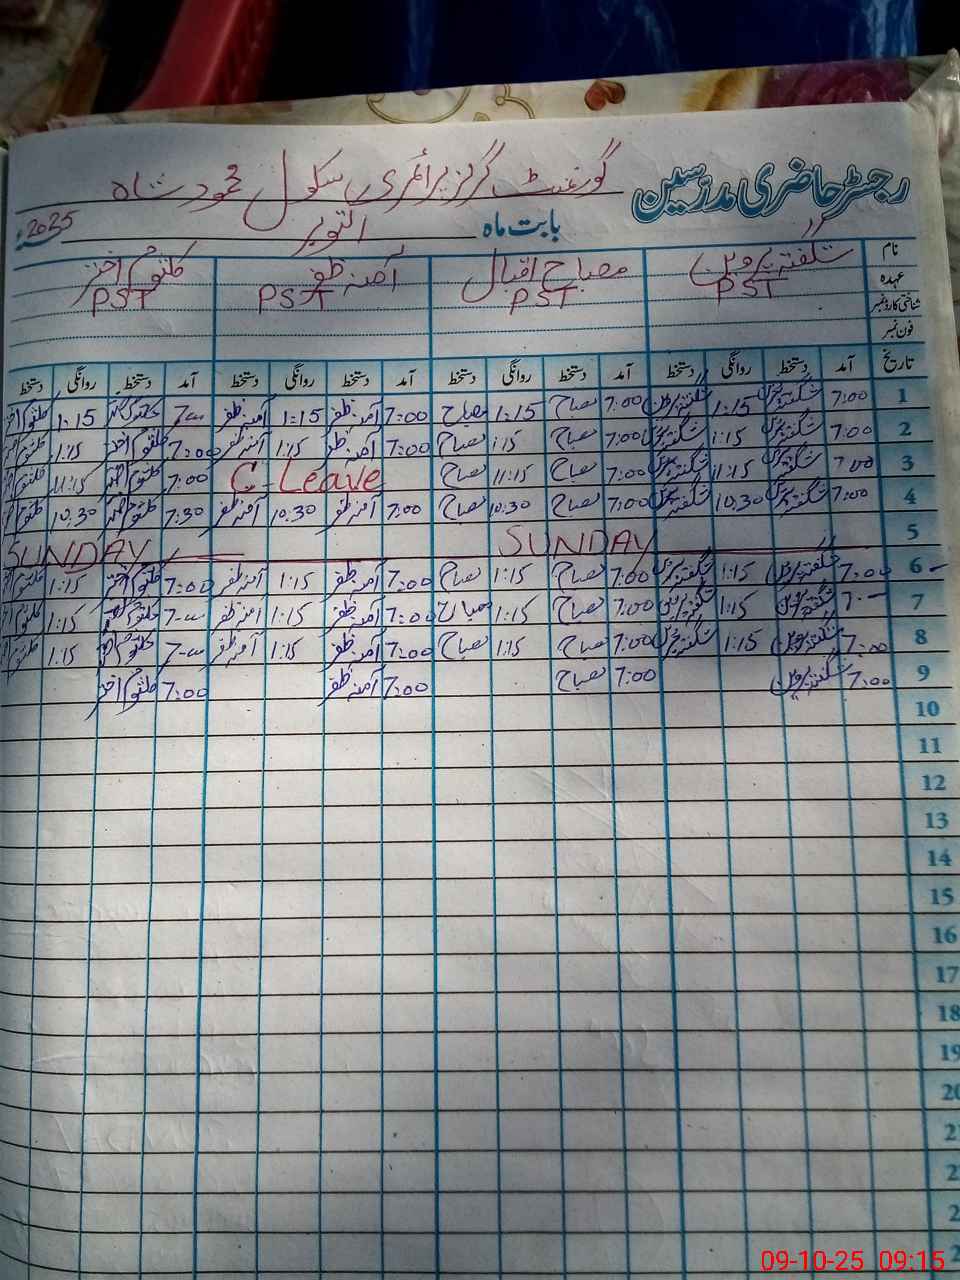 رجسٹر حاضری مدرسین گورنمنٹ گرلز پرائمری سکول محمود شاہ
بابت ماہ اکتوبر 2025ء
نام شگفتہ پروین مصباح اقبال آمنہ ظفر کلثوم اختر
عہدہ PST PST PST PST
شناختی کارڈ نمبر
فون نمبر
تاریخ آمد دستخط روانگی دستخط آمد دستخط روانگی دستخط آمد دستخط روانگی دستخط آمد دستخط روانگی دستخط
1 7:00 شگفتہ پروین 1:15 شگفتہ پروین 7:00 مصباح 1:15 مصباح 7:00 آمنہ ظفر 1:15 آمنہ ظفر 7:00 کلثوم اختر 1:15 کلثوم اختر
2 7:00 شگفتہ پروین 1:15 شگفتہ پروین 7:00 مصباح 1:15 مصباح 7:00 آمنہ ظفر 1:15 آمنہ ظفر 7:00 کلثوم اختر 1:15 کلثوم اختر
3 7:00 شگفتہ پروین 11:15 شگفتہ پروین 7:00 مصباح 11:15 مصباح C-Leave 7:00 کلثوم اختر 11:15 کلثوم اختر
4 7:00 شگفتہ پروین 10:30 شگفتہ پروین 7:00 مصباح 10:30 مصباح 7:00 آمنہ ظفر 10:30 آمنہ ظفر 7:30 کلثوم اختر 10:30 کلثوم اختر
5 SUNDAY SUNDAY
6 7:00 شگفتہ پروین 1:15 شگفتہ پروین 7:00 مصباح 1:15 مصباح 7:00 آمنہ ظفر 1:15 آمنہ ظفر 7:00 کلثوم اختر 1:15 کلثوم اختر
7 7:00 شگفتہ پروین 1:15 شگفتہ پروین 7:00 مصباح 1:15 مصباح 7:00 آمنہ ظفر 1:15 آمنہ ظفر 7:00 کلثوم اختر 1:15 کلثوم اختر
8 7:00 شگفتہ پروین 1:15 شگفتہ پروین 7:00 مصباح 1:15 مصباح 7:00 آمنہ ظفر 1:15 آمنہ ظفر 7:00 کلثوم اختر 1:15 کلثوم اختر
9 7:00 شگفتہ پروین 7:00 مصباح 7:00 آمنہ ظفر 7:00 کلثوم اختر
10
11
12
13
14
15
16
17
18
19
20
09-10-25 09:15